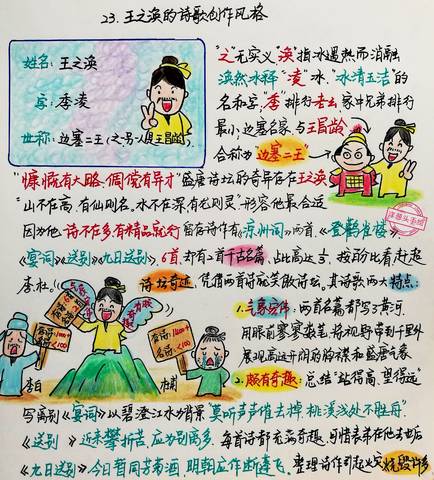 23.王之涣的诗歌创作风格
姓名:王之涣
字:季凌
世称:边塞二王(之另一人是王昌龄)
"之"无实义,"涣"指冰遇热而消融
涣然冰释"凌"冰,"冰清玉洁"的
名和字,"季"排行老去家中兄弟排行
最小,边塞名家,与王昌龄
合称为"边塞二王"
"慷慨有大略,倜傥有异才"盛唐诗坛的奇异存在王之涣
"山不在高,有仙则名,水不在深有龙则灵"形容他最合适
因为他诗不在多有精品就行留存诗作有《凉州词》(两首、《登鹳雀楼》、
《宴词》《送别》《九日送别》,6首,却有2首千古名篇,占比高达
李杜。诗坛奇迹,凭借两首诗能笑傲诗坛,其诗歌两大特点:
1.气象宏伟:两首名篇都写了黄河,
用眼前寥寥数笔,将视野带到千里外
展现高远开阔的胸襟和盛唐气象
2.颇有奇趣:总结"站得高,望得远"
李白
杜甫
写离别《宴词》以碧澄江水为背景"莫听声声催去棹,桃溪浅处不胜舟"
《送别》近来攀折苦,应为别离多,每首诗都充满奇趣,可惜表弟在他去世后
《九日送别》今日暂同芳菊酒,明朝应作断蓬飞,整理诗作引起火灾烧毁许多